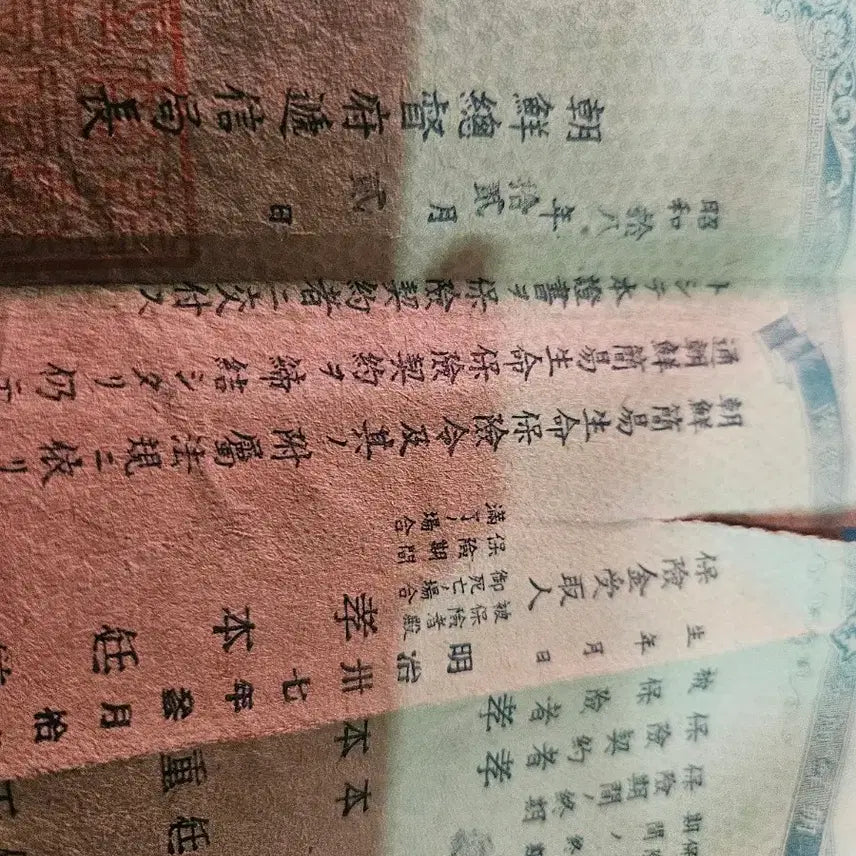 保險期間ノ終期
保險契約者 孝本
被保險者 孝本重任
生年月日 明治卅七年 月拾
保險金受取人
被保險者殿御死亡ノ場合
保險期間滿了ノ場合
孝本 任
朝鮮簡易生命保險令及其ノ附屬法規ニ依リ
通朝鮮簡易生命保險契約ヲ締結シタリ仍テ
トシテ本證書ヲ保險契約者ニ交付ス
昭和拾八年拾貳月貳日
朝鮮總督府遞信局長